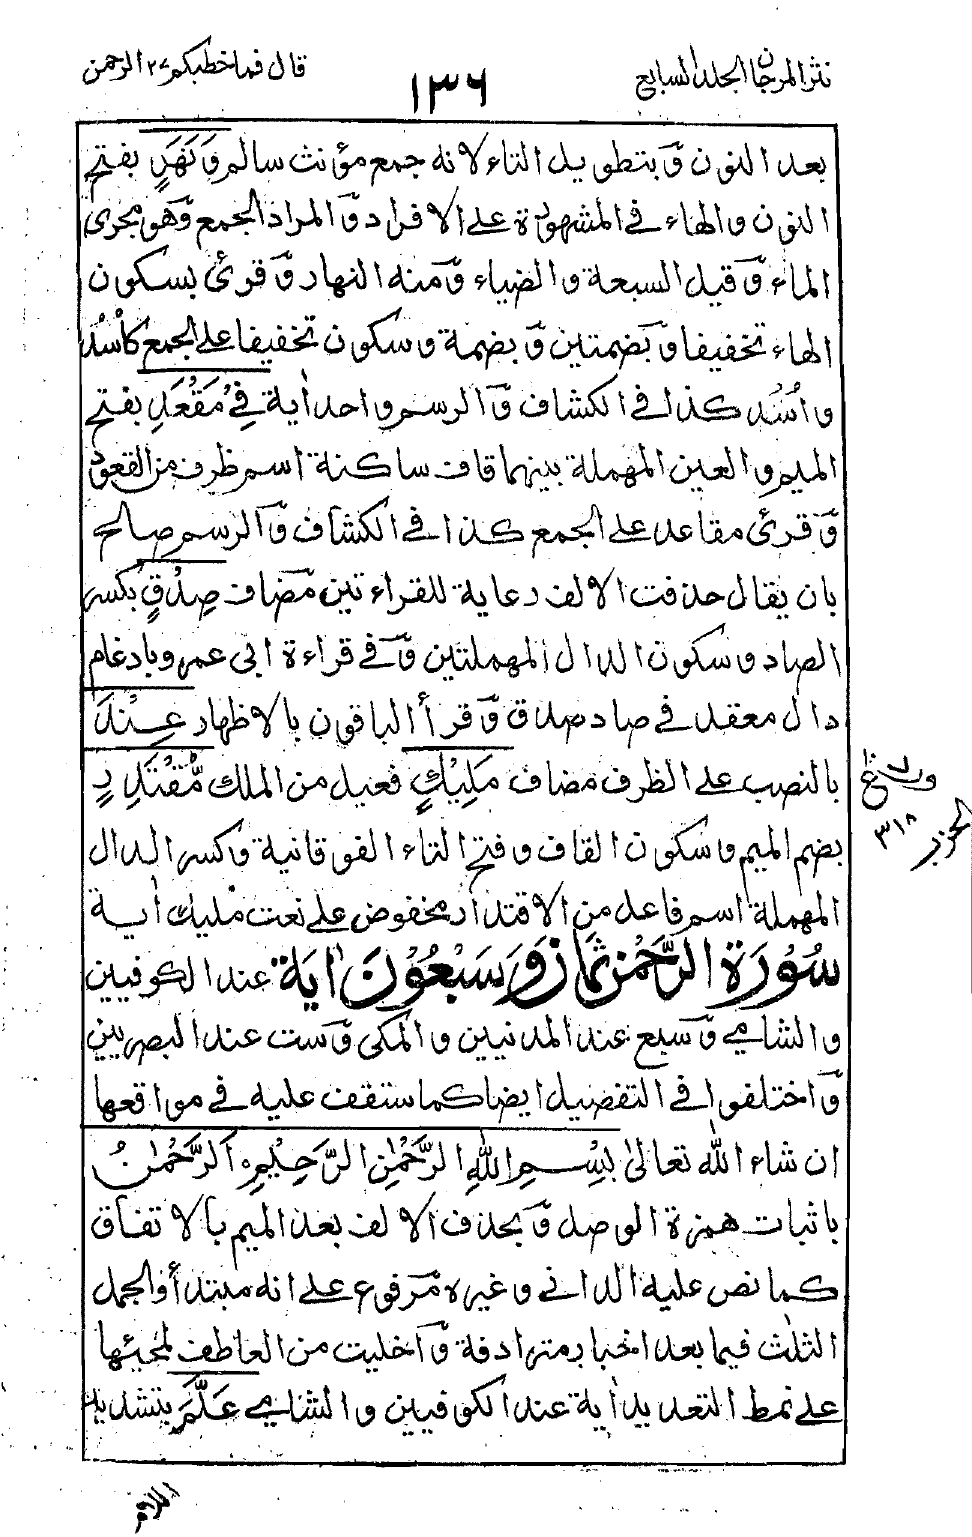 نثر المرجان الجلد السابع
١٣٦
قال فما خطبكم ٢٧ الرحمن
بعد النون وَبتطويل التاء لانه جمع مؤنث سالم وَنَهَرٍ بفتح
النون والهاء في المشهورة على الافراد وَالمراد الجمع وَهو مجرى
الماء وَقيل السعة والضياء وَمنه النهار وَقرئ بسكون
الهاء تخفيفا وَبضمتين وَبضمة وسكون تخفيفا على الجمع كاُسْد
واُسُد كذا في الكشاف وَالرسم واحد اٰية فِيْ مَقْعَدِ بفتح
الميم والعين المهملة بينهما قاف ساكنة اسم ظرف من القعود
وَقرئ مقاعد على الجمع كذا في الكشاف وَالرسم صالح
بان يقال حذفت الالف رعاية للقراءتين مَضاف صِدْقٍ بكسر
الصاد وسكون الدال المهملتين وَفي قراءة ابي عمرو بادغام
دال معقد في صاد صدق وَقرأ الباقون بالاظهار عِنْدَ
بالنصب على الظرف مضاف مَلِيْكٍ فعيل من الملك مُّقْتَدِرٍ
بضم الميم وسكون القاف وفتح التاء الفوقانية وَكسر الدال
المهملة اسم فاعل من الاقتدار مخفوض على نعت مليك اٰية
سُوْرَة الرَّحْمٰن ثمانٌ وَسَبْعُوْنَ اٰيَة عند الكوفيين
والشامي وَسبع عند المدنيين والمكي وَست عند البصريين
وَاختلفوا في التفصيل ايضا كما ستقف عليه في مواقعها
ان شاء الله تعالىٰ بِسْمِ اللّٰهِ الرَّحْمٰنِ الرَّحِيْمِ ٥ اَلرَّحْمٰنُ
باثبات همزة الوصل وَبحذف الالف بعد الميم بالاتفاق
كما نص عليه الداني وغيره مَرفوع على انه مبتدأ والجمل
الثلٰث فيما بعد اخبار مترادفة وَاخليت من العاطف لمجيئها
على نمط التعديد اٰية عند الكوفيين والشامي عَلَّمَ بتشديد
اللام